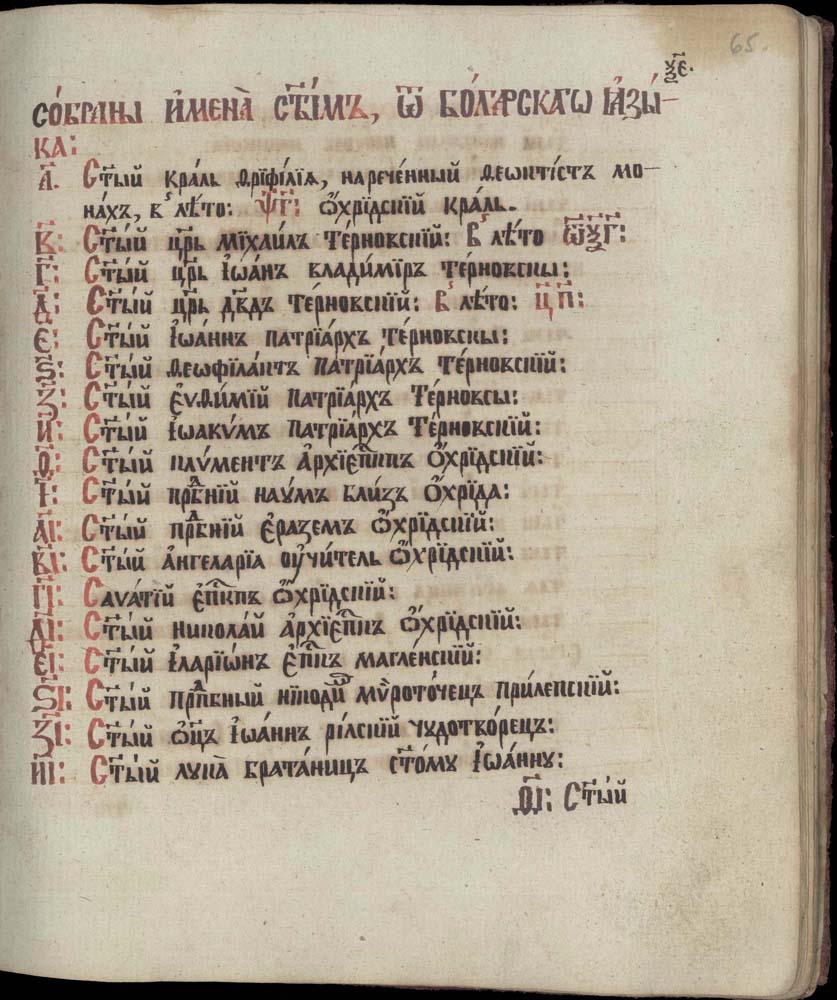 65.
ѯ҃е.
Со́браны и҆мена̀ ст҃ы́мъ, ѿ бо́лгарскагѡ ꙗ҆зы́-
ка:
а҃. Ст҃ы́й кра́ль ѳрїфі́лїѧ, нарече́нный ѳеѡнті́стъ мо-
на́хъ, в̾ лѣ́то: ѱ҃г: ѡ҆хри́дскїй кра́ль.
в҃: Ст҃ы́й цр҃ь мїхаи́лъ те́рновскїй: в̾ лѣ́то
г҃: Ст҃ы́й цр҃ь і҆ѡа́нъ влади́мїръ те́рновскы:
д҃: Ст҃ы́й цр҃ь дв҃дъ те́рновскїй: в̾ лѣ́то: ц҃п:
є҃: Ст҃ы́й і҆ѡа́ннъ патрїа́рхъ те́рновскы:
ѕ҃: Ст҃ы́й ѳеѡфїла́нтъ патрїа́рхъ те́рновскїй:
з҃: Ст҃ы́й є҆ѵѳи́мїй патрїа́рхъ те́рновсы:
и҃: Ст҃ы́й і҆ѡакѵ́мъ патрїа́рхъ те́рновскїй:
ѳ҃: Ст҃ы́й клѵ́ментъ а҆рхїєп҃кпъ ѻ҆хрі́дскїй:
і҃: Ст҃ы́й прпⷣбнїй нау́мъ бли́зъ ѻ҆хрі́да:
а҃і: Ст҃ы́й прпⷣбнїй є҆ра́земъ ѡ҆хрі́дскїй:
в҃і: Ст҃ы́й а҆нгеларїа оу҆чи́тель ѡ҆хрі́дскїй:
г҃і: Саѵа́тїй є҆п҃кпъ ѡ҆хрі́дскїй:
д҃і: Ст҃ы́й никола́й а҆рхїєп҃кпъ ѻ҆хрі́дскїй:
є҃і: Ст҃ы́й і҆ларїѡ́нъ є҆п҃кпъ магле́нскїй:
ѕ҃і: Ст҃ы́й прпⷣбный нїко́димъ мѵ̈рото́чецъ при́лепскїй:
з҃і: Ст҃ы́й ѻ҆ц҃ъ і҆ѡа́ннъ рі́лскїй чудотво́рецъ:
и҃і: Ст҃ы́й лука̀ брата́ницъ ст҃о́му і҆ѡа́нну:
ѳ҃і: Ст҃ы́й